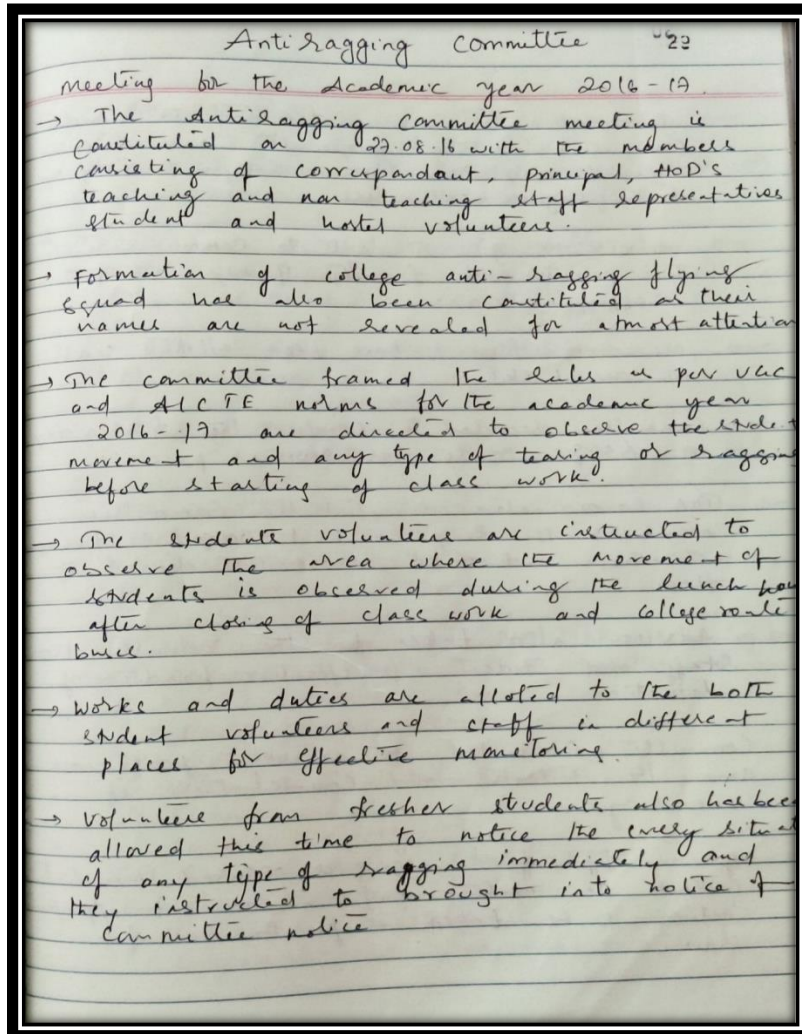 Anti ragging committee 29
meeting for the Academic year 2016-17.
→ The Antiragging committee meeting is
constituted on 27.08.16 with the members
consisting of correspondant, principal, HOD's
teaching and non teaching staff representatives
student and hostel volunteers.
→ Formation of college anti-ragging flying
squad has also been constituted as their
names are not revealed for atmost attention
→ The committee framed the rules as per UGC
and AICTE norms for the academic year
2016-17 are directed to observe the stude t
movement and any type of teasing or raggin
before starting of class work.
→ The students volunteers are instructed to
observe the area where the movement of
students is observed during the lunch hou
after closing of class work and college route
buses.
→ Works and duties are alloted to the both
student volunteers and staff in different
places for effective monitoring.
→ Volunteers from fresher students also has bee
allowed this time to notice the every situat
of any type of ragging immediately and
they instructed to brought into notice of
committee notice